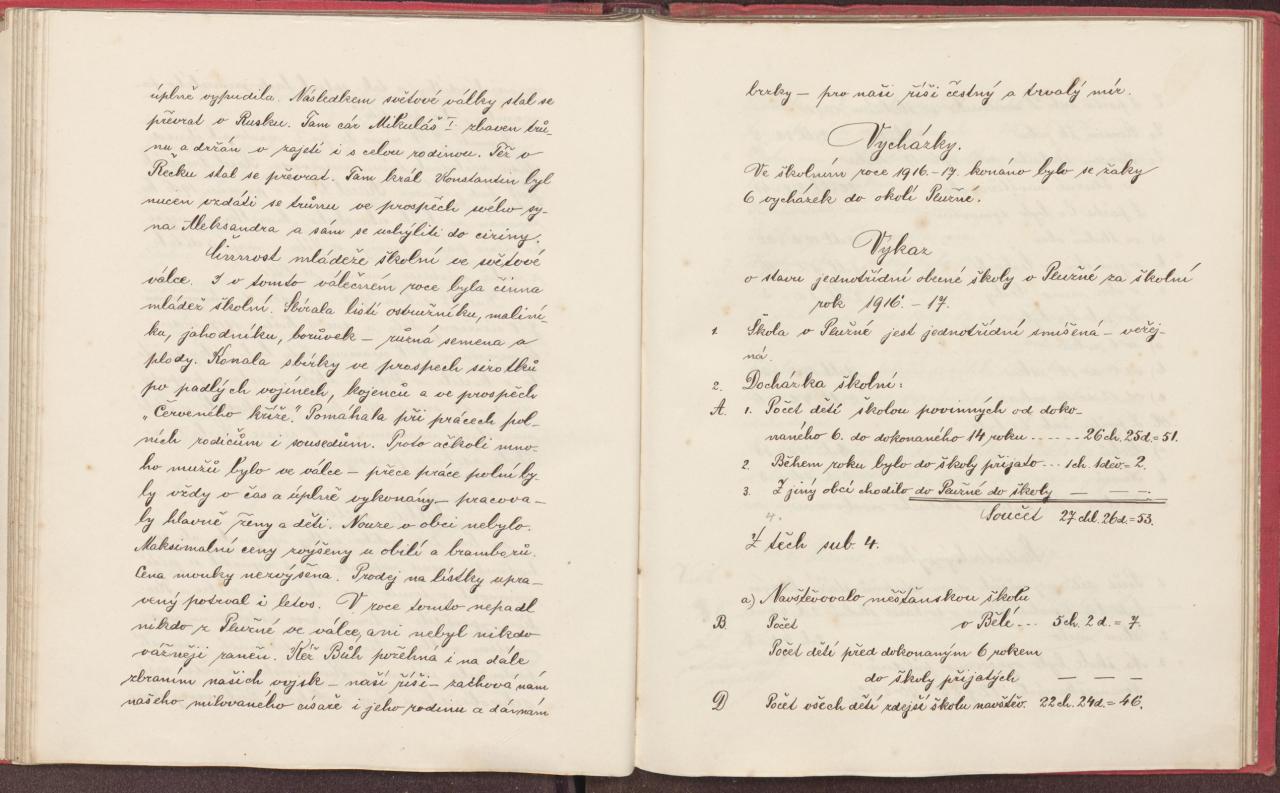 úplně vypudila. Následkem světové války stal se
převrat v Rusku. Tam cár Mikuláš I. zbaven trů-
nu a držán v zajetí i s celou rodinou. Též v
Řecku stal se převrat. Tam král Konstantin byl
nucen vzdáti se trůnu ve prospěch svého sy-
na Aleksandra a sám se uchýliti do ciziny.
Činnost mládeže školní ve světové
válce. I v tomto válečném roce byla činna
mládež školní. Sbírala listí ostružníku, malini-
ku, jahodníku, borůvek – různá semena a
plody. Konala sbírky ve prospěch sirotků
po padlých vojínech, kojenců a ve prospěch
„Červeného kříže." Pomáhala při prácech pol-
ních rodičům i sousedům. Proto ačkoli mno-
ho mužů bylo ve válce – přece práce polní by-
ly vždy v čas a úplně vykonány – pracova-
ly hlavně ženy a děti. Nouze v obci nebylo.
Maksimalní ceny zvýšeny u obilí a bramborů.
Cena mouky nezvýšena. Prodej na lístky upra-
vený potrval i letos. V roce tomto nepadl
nikdo z Plužné ve válce, ani nebyl nikdo
vážněji raněn. Kéž Bůh požehná i na dále
zbraním našich vojsk – naší říši – zachová nám
našeho milovaného císaře i jeho rodinu a dá nám
brzky – pro naši říši čestný a trvalý mír.
Vycházky.
Ve školním roce 1916.–17. konáno bylo se žáky
6 vycházek do okolí Plužné.
Výkaz
o stavu jednotřídní obecné školy v Plužné za školní
rok 1916 – 17.
1. Škola v Plužné jest jednotřídní smíšená – veřej-
ná.
2. Docházka školní:
A. 1. Počet dětí školou povinných od doko-
naného 6. do dokonaného 14 roku ...... 26 ch. 25 d. = 51.
2. Během roku bylo do školy přijato ... 1 ch. 1 děv. = 2.
3. Z jiný obcí chodilo do Plužné do školy — — —.
4. Součet 27 chl. 26 d. = 53.
Z těch sub. 4.
a) Navštěvovalo měšťanskou školu
B. Počet v Bělé ... 5 ch. 2 d. = 7.
Počet dětí před dokonaným 6 rokem
do školy přijatých — — —
D Počet všech dětí zdejší školu navštěv. 22 ch. 24 d. = 46.